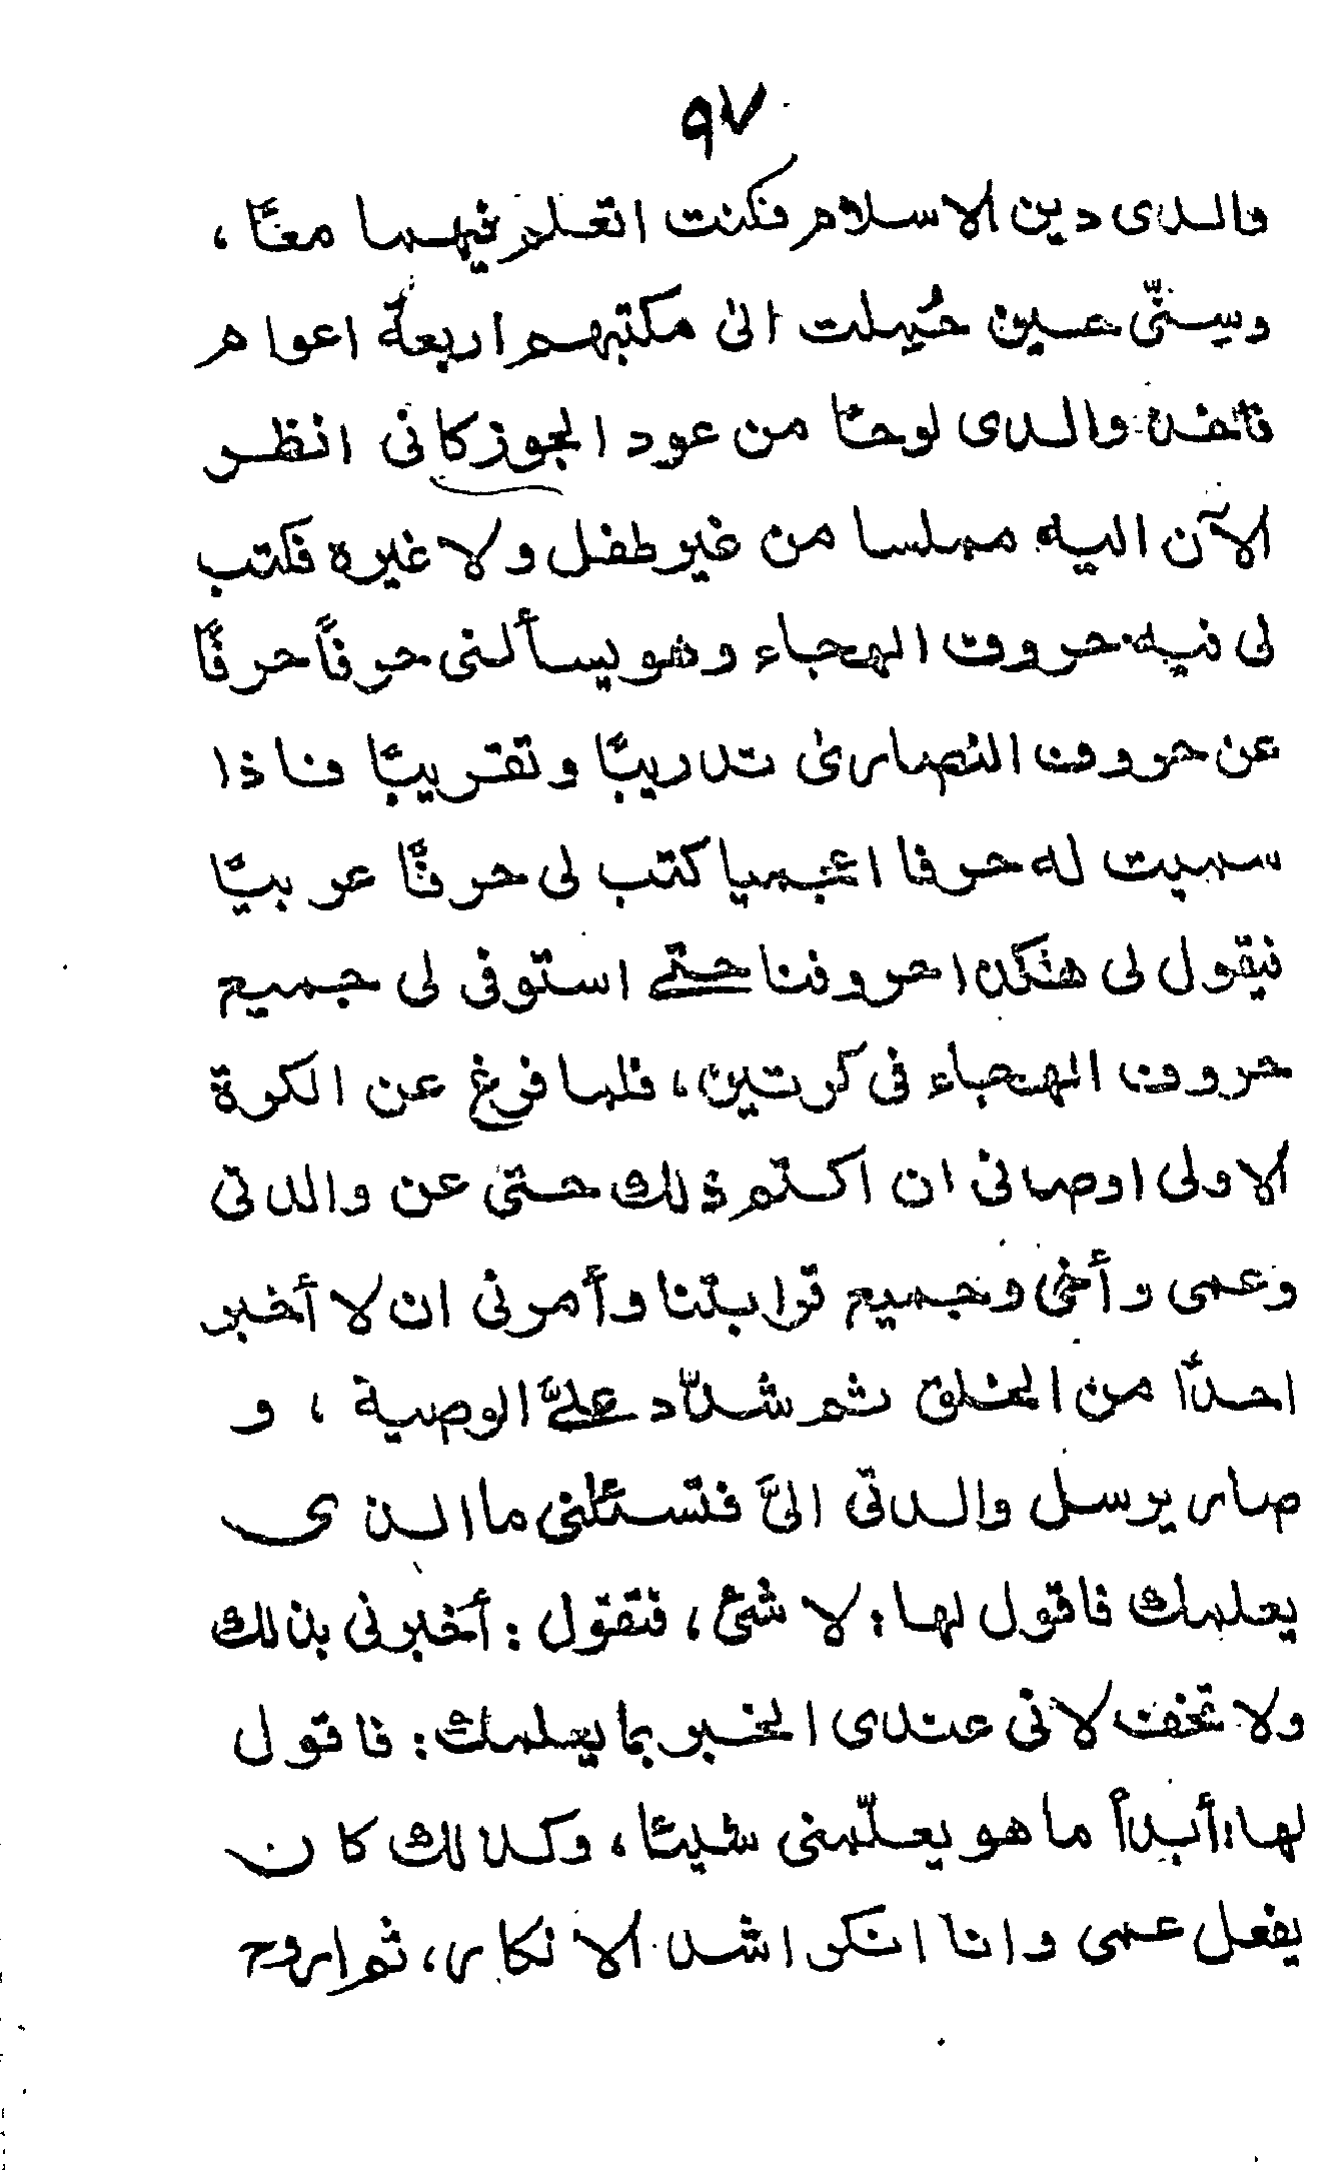 ٩٧
والدى دين الاسلام فكنت اتعلم فيهما معًا ،
وسِنّى حين حُملت الى مكتبهم اربعة اعوام
فاخذ والدى لوحًا من عود الجوز كانى انظر
الآن اليه مملسا من غير طفل ولا غيره فكتب
لى فيه حروف الهجاء وهو يسألنى حرفاً حرفًا
عن حروف النصارىٰ تدريبًا وتقريبًا فاذا
سميت له حرفا اعجميا كتب لى حرفًا عربيًا
فيقول لى هٰكذا حروفنا حتے استوفى لى جميع
حروف الهجاء فى كرتين، فلما فرغ عن الكرة
الاولى اوصانى ان اكتم ذلك حتى عن والدتى
وعمى وأخى وجميع قرابتنا وأمرنى ان لا أخبر
احداً من الخلق ثم شدّد علےَّ الوصية ، و
صار يرسل والدتى الىَّ فتسئلنى ما الذى
يعلمك فاقول لها: لا شئ، فتقول : أخبرنى بذلك
ولا تخف لانى عندى الخبر بما يعلمك: فاقول
لها: أبداً ما هو يعلّمنى شيئا، وكذالك كان
يفعل عمى وانا انكر اشد الانكار، ثم اروح